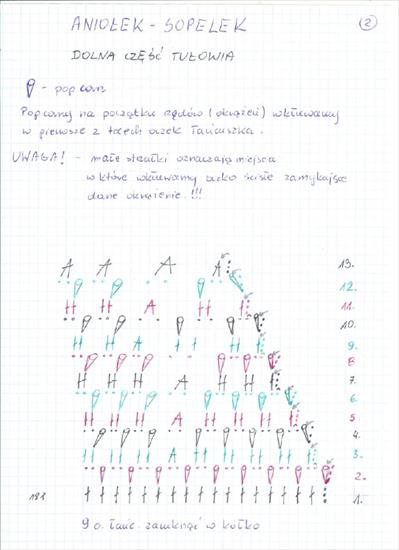 ANIOŁEK - SOPELEK
2
DOLNA CZĘŚĆ TUŁOWIA
- popcorn
Popcorny na początku rzędów (okrążeń) wkłuwamy
w pierwsze z trzech oczek łańcuszka.
UWAGA! - małe strzałki oznaczają miejsca
w które wkłuwamy oczko ścisłe zamykające
dane okrążenie.!!!
13.
12.
11.
10.
9.
8
7.
6.
5
4.
3.
2.
1.
9 o. łańc. zamknąć w kółko